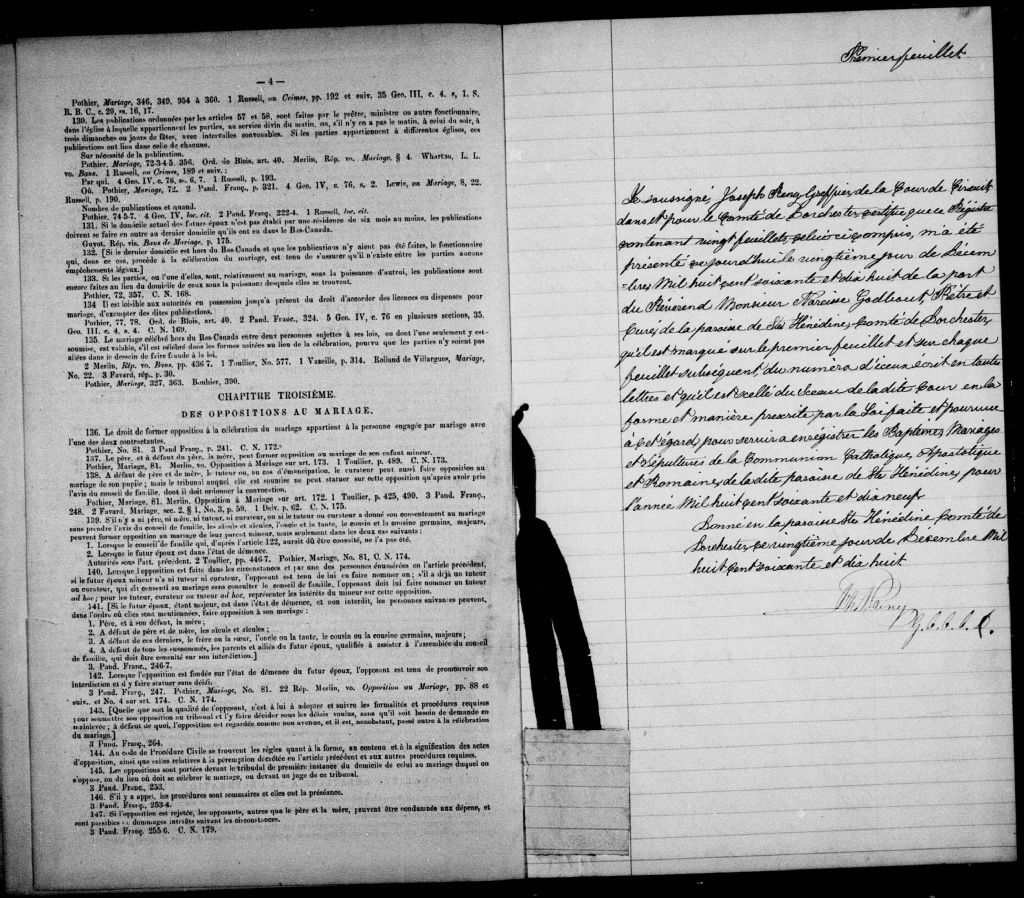 — 4 —
Pothier, Mariage, 346, 349, 954 à 360. 1 Russell, on Crimes, pp. 192 et suiv. 35 Geo. III, c. 4. s, 1. S.
R. B. C., c. 20, ss. 16, 17.
130. Les publications ordonnées par les articles 57 et 58, sont faites par le prêtre, ministre ou autre fonctionnaire,
dans l'église à laquelle appartiennent les parties, au service divin du matin, ou, s'il n'y en a pas le matin, à celui du soir, à
trois dimanches ou jours de fêtes, avec intervalles convenables. Si les parties appartiennent à différentes églises, ces
publications ont lieu dans celle de chacune.
Sur nécessité de la publication.
Pothier, Mariage, 72-3-4-5. 356, Ord. de Blois, art. 40. Merlin, Rép. vo. Mariage, § 4. Wharton, L. L.
vo. Bans. 1 Russell, on Crimes, 189 et suiv. :
Par qui. 4 Geo. IV, c. 76, s. 6, 7. 1 Russell, p. 193.
Où. Pothier, Mariage, 72. 2 Pand. Franç., p. 321. 4 Geo. IV, c. 76, s. 2. Lewis, on Mariage, 8, 22.
Russell, p. 190.
Nombre de publications et quand.
Pothier, 74 5-7. 4 Geo. IV, loc. cit. 2 Pand. Franç., 222-4. 1 Russell, loc. cit.
131. Si le domicile actuel des futurs époux n'est pas établi par une résidence de six mois au moins, les publications
doivent se faire en outre au dernier domicile qu'ils ont eu dans le Bas-Canada.
Guyot. Rép. vis. Bans de Mariage, p. 175.
132. [Si le dernier domicile est hors du Bas-Canada et que les publications n'y aient pas été faites, le fonctionnaire
qui, dans ce cas, procède à la célébration du mariage, est tenu de s'assurer qu'il n'existe entre les parties aucuns
empêchements légaux.]
133. Si les parties, ou l'une d'elles, sont, relativement au mariage, sous la puissance d'autrui, les publications sont
encore faites au lieu du domicile de ceux sous la puissance desquels elles se trouvent.
Pothier, 72, 357. C. N. 168.
134 Il est loisible aux autorités en possession jusqu'à présent du droit d'accorder des licences ou dispenses pour
mariage, d'exempter des dites publications.
Pothier, 77, 78. Ord. de Blois, art. 40. 2 Pand. Franc., 324. 5 Geo. IV, c. 76 en plusieurs sections, 35.
Geo. III. c. 4, s. 4. C. N. 169.
135. Le mariage célébré hors du Bas-Canada entre deux personnes sujettes à ses lois, ou dont l'une seulement y est-
soumise, est valable, s'il est célébré dans les formes usitées au lieu de la célébration, pouvu que les parties n'y soient pas
allées dans le dessein de faire fraude à la loi.
2 Merlin, Rép. vo. Bans, pp. 436 7. 1 Toullier, No. 577. 1 Vazeille, p. 314. Rolland de Villargues, Mariage,
No. 22. 3 Favard, rép., p. 30.
Pothier, Mariage, 327, 363. Bouhier, 390.
CHAPITRE TROISIÉME.
DES OPPOSITIONS AU MARIAGE.
136. Le droit de former opposition à la célébration du mariage appartient à la personne engagée par mariage avec
l'une des deux contractantes.
Pothier, No. 81. 3 Pand Franç., p. 241. C. N. 172.
137. Le père, et à défaut du père, la mère, peut former opposition au mariage de son enfant mineur.
Pothier, Mariage, 81. Merlin. vo. Opposition à Mariage sur art. 173. 1 Toullier, p. 489. C. N. 173.
138. A défaut de père et de mère, le tuteur ou, au cas d'émancipation, le curateur peut aussi faire opposition au
mariage de son pupile ; mais le tribunal auquel elle est soumise ne peut statuer sur cette opposition qu'après avoir pris
l'avis du conseil de famille, dont il doit ordonner la convocation.
Pothier, Mariage, 81. Merlin, Opposition à Mariage sur art. 172. 1 Toullier, p. 425, 490. 3 Pand. Franç.,
248. 2 Favard. Mariage, sec. 2. § 1, No. 3, p. 59. 1 Delv. p. 62. C. N. 175.
139. S'il n'y a ni père, ni mère, ni tuteur, ni curateur, ou si le tuteur ou curateur a donné son consentement au mariage
sans prendre l'avis du conseil de famille, les aïeuls et aïeules, l'oncle et la tante, le cousin et la cousine germains, majeurs,
peuvent former opposition au mariage de leur parent mineur, mais seulement dans les deux cas suivants :
1. Lorsque le conseil de famille qui, d'après l'article 122, aurait dû être consulté, ne l'a pas été.
2. Lorsque le futur époux est dans l'état de démence.
Autorités sous Part. précédent. 2 Toullier, pp. 446-7. Pothier, Mariage, No. 81, C. N. 174.
140. Lorsque l'opposition est faite dans les circonstances et par une des personnes énumérées en l'article précédent,
si le futur époux mineur n'a ni tuteur ni curateur, l'opposant est tenu de lui en faire nommer un ; s'il a déjà un tuteur
ou curateur, qui ait consenti au mariage sans consulter le conseil de famille, l'opposant doit lui faire nommer un tuteur
ad hoc ; pour les tuteur, curateur ou tuteur ad hoc, représenter les intérêts du mineur sur cette opposition.
141. [Si le futur époux, étant majeur, est dans l'état de démence, et non interdit, les personnes suivantes peuvent,
dans l'ordre où elles sont mentionnées, faire opposition à son mariage :
1. Père, et à son défaut, la mère ;
2. A défaut de père et de mère, les aïeuls et aïeules ;
3. A défaut de ces derniers, le frère ou la sœur, l'oncle ou la tante, le cousin ou la cousine germains, majeurs ;
4. A défaut de tous les susnommés, les parents et alliés du futur époux, qualifiés à assister à l'assemblée du conseil
de famille, qui doit être consulté sur son interdiction.]
3. Pand. Franc., 246-7.
142. Lorsque l'opposition est fondée sur l'état de démence du futur époux, l'opposant est tenu de promouvoir son
interdiction et d y faire statuer sans délai.
3 Pand. Franç., 247. Pothier, Mariage, No. 81. 22 Rép. Merlin, vo. Opposition au Mariage, pp. 88 et
suiv.. et No. 4 sur art. 174. C. N. 174.
143. [Quelle que soit la qualité de l'opposant, c'est à lui à adopter et suivre les formalités et procédures requises
pour soumettre son opposition au tribunal et l'y faire décider sous les délais voulus, sans qu'il soit besoin de demande en
mainlevée ; à défaut de quoi, l'opposition est regardée comme non avenue, et il est, nonobstant, passé outre à la célébration
du mariage.]
3 Pand. Franç., 264.
144. Au code de Procédure Civile se trouvent les règles quant à la forme, au contenu et à la signification des actes
d'opposition, ainsi que celles relatives à la péremption décrétée en l'article précédent et aux autres procédures requises.
145. Les oppositions sont portées devant le tribunal de première instance du domicile de celui au mariage duquel on
s'oppose, ou du lieu où doit se célébrer le mariage, ou devant un juge de ce tribunal.
3 Pand. Franç., 253.
146. S'il y a appel, les procédures sont sommaires et elles ont la préséance.
3 Pand. Franç., 253-4.
147. Si l'opposition est rejetée, les opposants, autres que le père et la mère, peuvent être condamnés aux dépens, et
sont passibles de dommages intérêts suivant les circonstances.
3 Pand. Franç. 255 6. C. N. 179.
Premier feuillet
Je soussigné, Joseph Greffier de la Cour de Circuit
dans et pour le Comté de Dorchester certifie que ce Régistre
contenant vingt feuillets celui ci compris, m'a été
présenté ce jourd'hui le vingtième jour de Décem
-bres Mil huit cent soixante et dix huit de la part
du Révérend Monsieur Narcisse Godbout, Prêtre et
Curé, de la paroisse de Ste Hénédine, Comté de Dorchester,
qu'il est marqué sur le premier feuillet et sur chaque
feuillet subséquent du numéro d'iceux écrit en toutes
lettres et qu'il est scellé du sceau de la dite Cour en la
forme et manière prescrite par la Loi faite et pourvue
à cet égard, pour servir a enrégistrer les Baptêmes, Mariages
et Sépultures de la Communion Catholique, Apostolique
et Romaine, de la dite paroisse de Ste Hénédine, pour
l'année Mil huit cent soixante et dix neuf
Donné en la paroisse Ste Hénédine, Comté de
Dorchester, ce vingtième jour de Décembre Mil
huit cent soixante et dix huit
G. C. C. C. D.